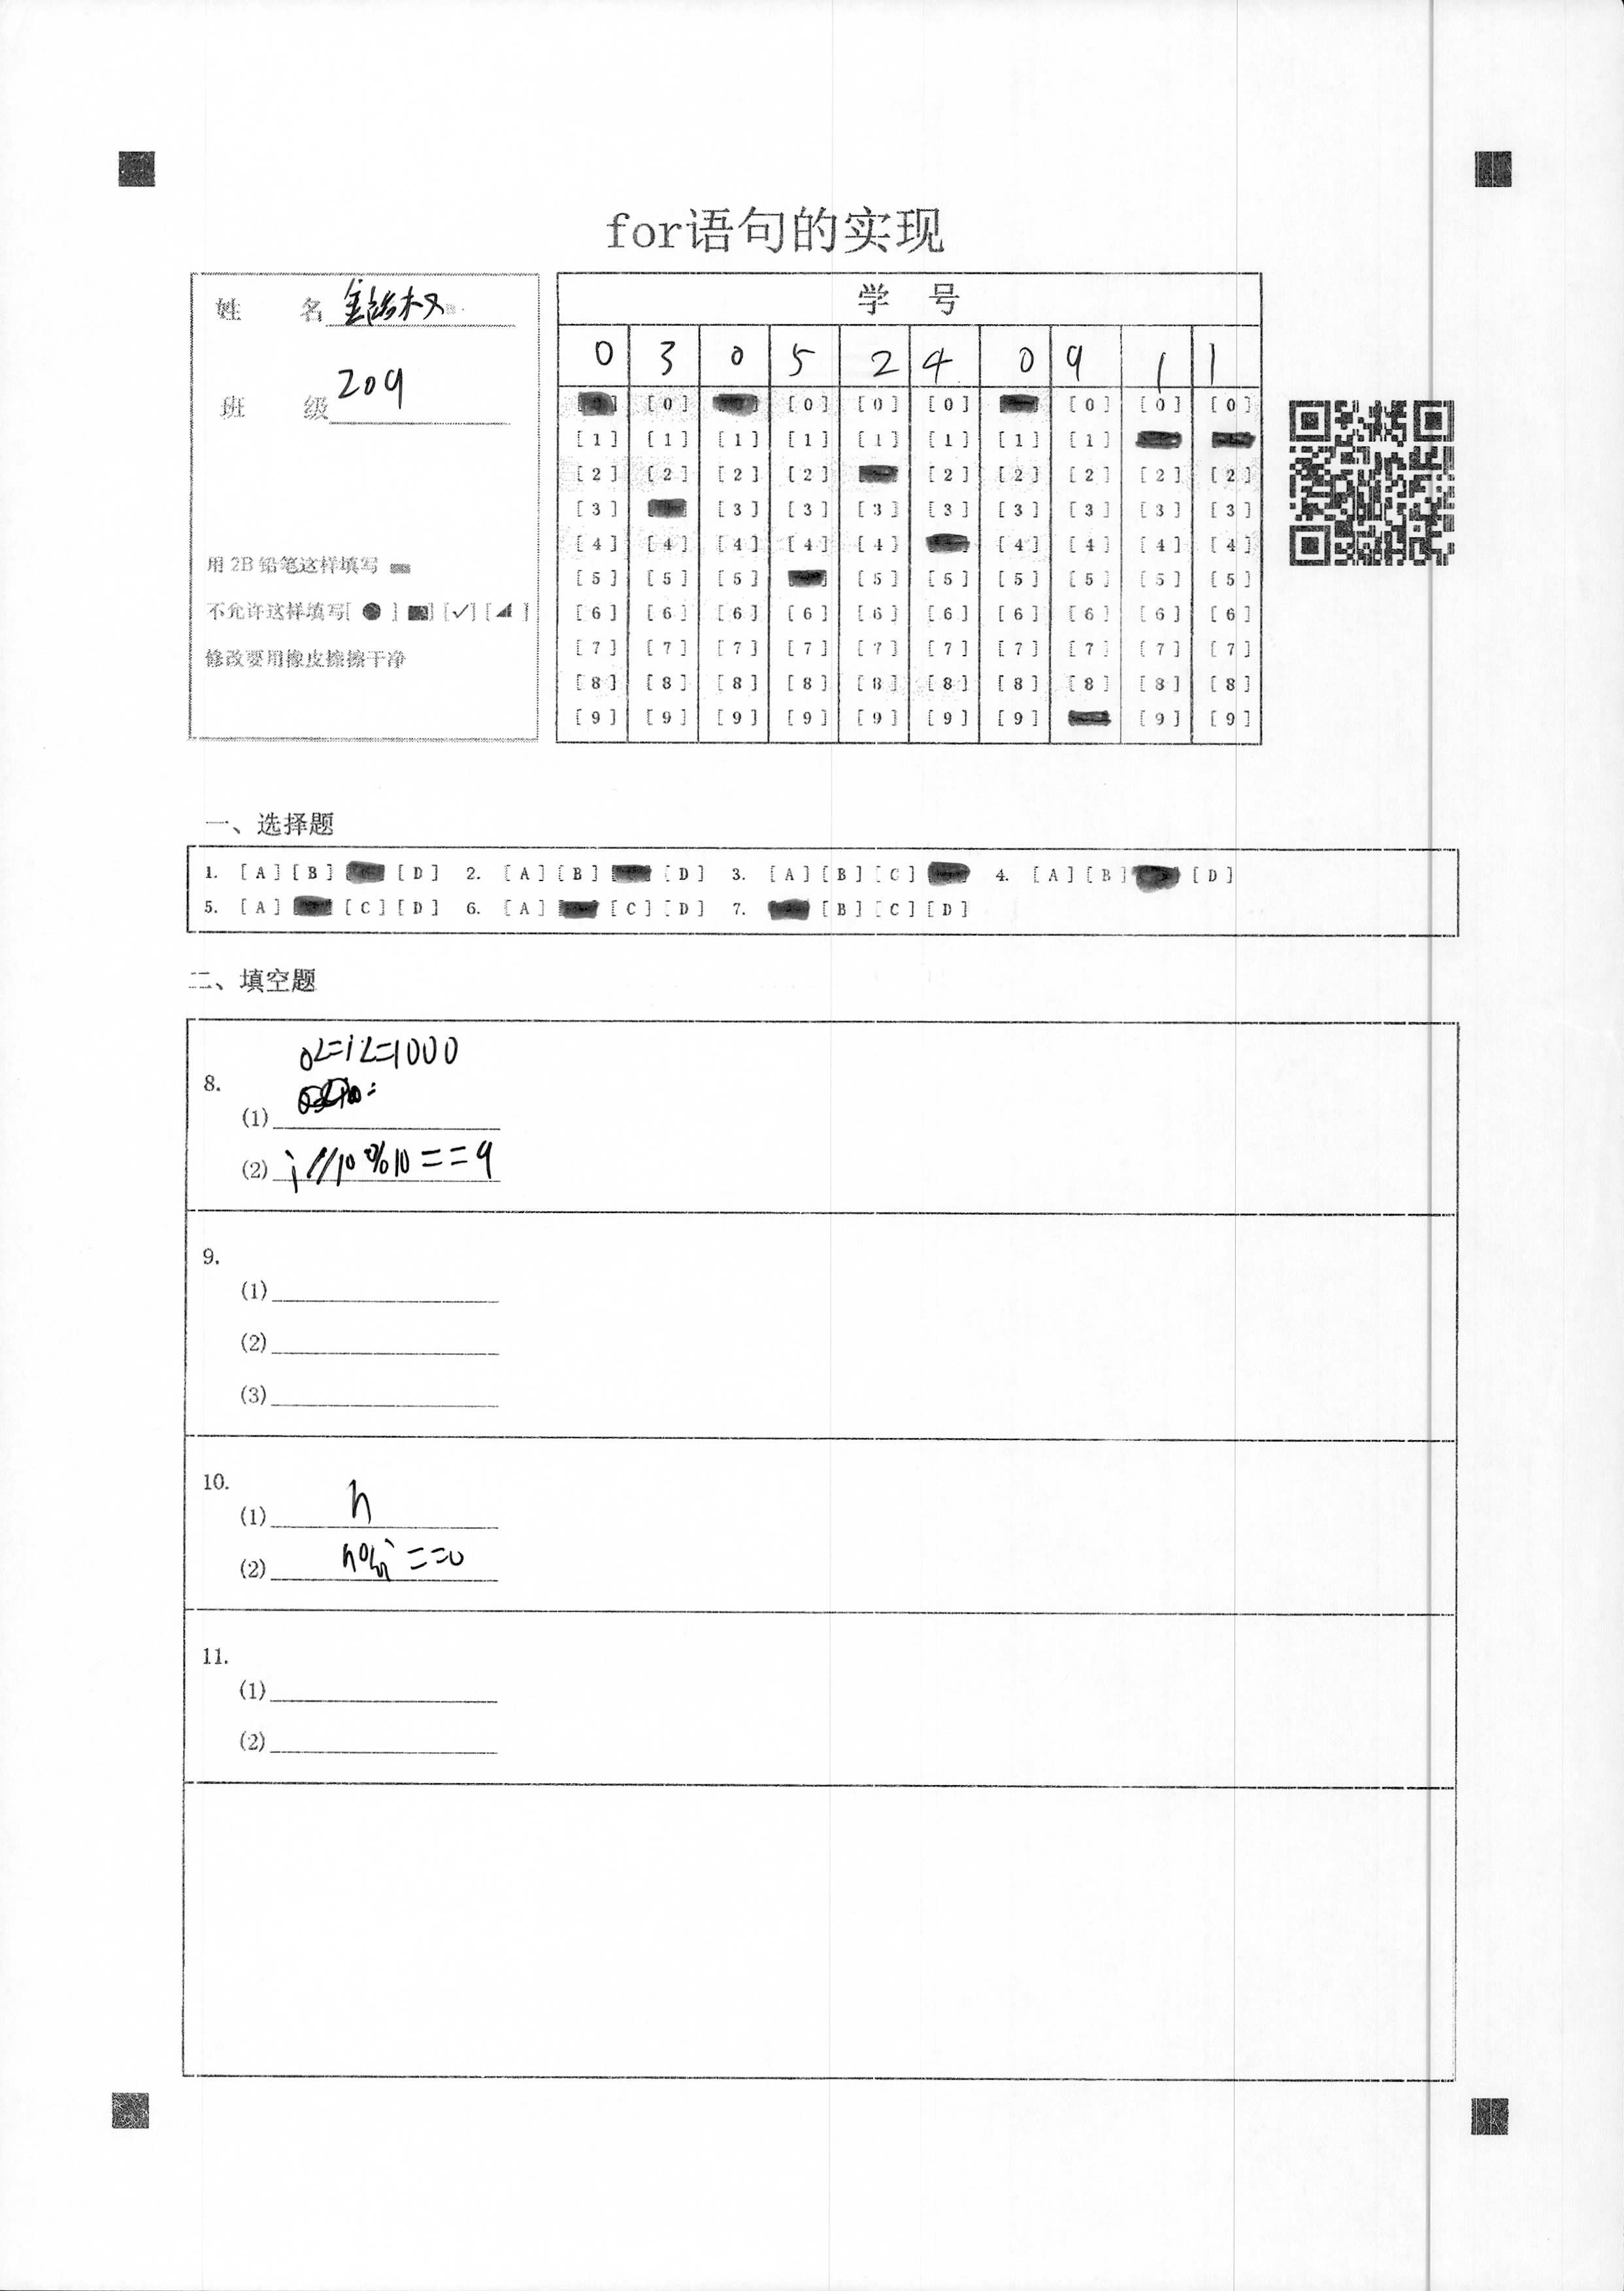 for语句的实现
姓 名
班 级 209
用 2B 铅笔这样填写
不允许这样填写[ ● ] [■] [✓] [◢ ]
修改要用橡皮擦擦干净
学 号
0 3 0 5 2 4 0 9 1 1
[0] [0] [0] [0] [0] [0] [0]
[1] [1] [1] [1] [1] [1] [1] [1]
[2] [2] [2] [2] [2] [2] [2] [2] [2]
[3] [3] [3] [3] [3] [3] [3] [3] [3]
[4] [4] [4] [4] [4] [4] [4] [4] [4]
[5] [5] [5] [5] [5] [5] [5] [5] [5]
[6] [6] [6] [6] [6] [6] [6] [6] [6] [6]
[7] [7] [7] [7] [7] [7] [7] [7] [7] [7]
[8] [8] [8] [8] [8] [8] [8] [8] [8] [8]
[9] [9] [9] [9] [9] [9] [9] [9] [9]
一、选择题
1. [A] [B] [D] 2. [A] [B] [D] 3. [A] [B] [C] 4. [A] [B] [D]
5. [A] [C] [D] 6. [A] [C] [D] 7. [B] [C] [D]
二、填空题
0<=i<=1000
8.
(1)
(2) i//10%10==9
9.
(1)
(2)
(3)
10.
(1) n
(2) n%i==0
11.
(1)
(2)